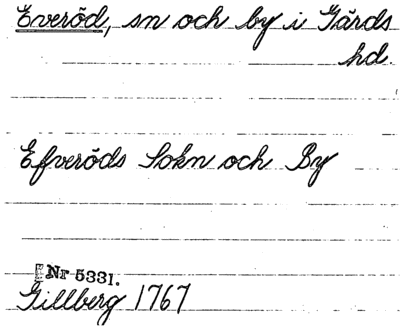 Everöd, sn och by i Gärds
hd.
Efveröds Sokn och By
Nr 5331.
Gillberg 1767